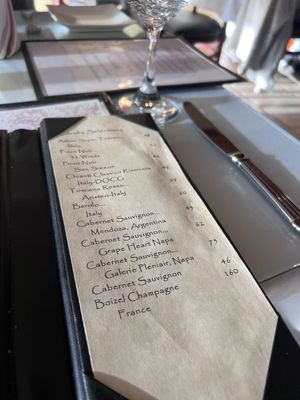 Italy
Pinot Noir
Pinot Noir
Chianti Classico Riserva
Italy-DOCG
Toscana Rosso
Barolo...
Italy
Cabernet Sauvignon...
Mendoza, Argentina
Cabernet Sauvignon... 62
Grape Heart Napa
Cabernet Sauvignon... 75
Galerie Pleniair, Napa
Cabernet Sauvignon 46
Boizel Champagne 160
France